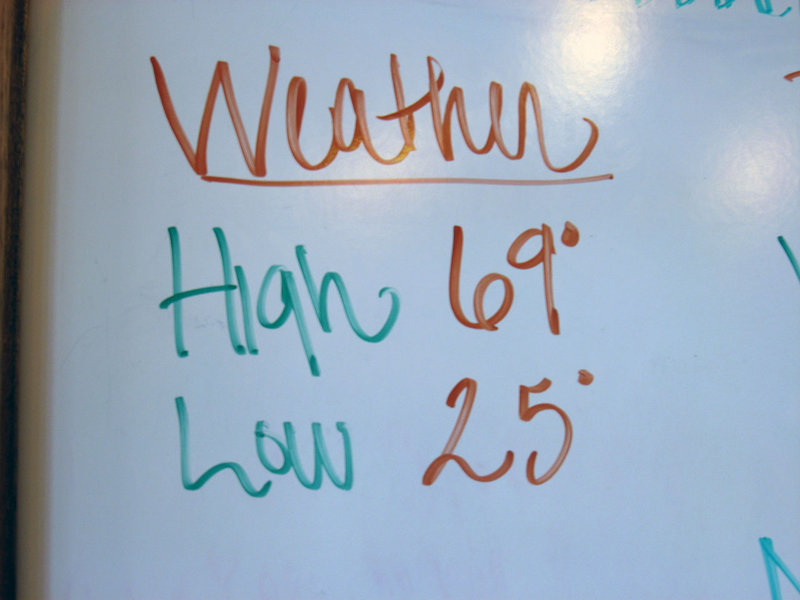 Weather
High 69°
Low 25°